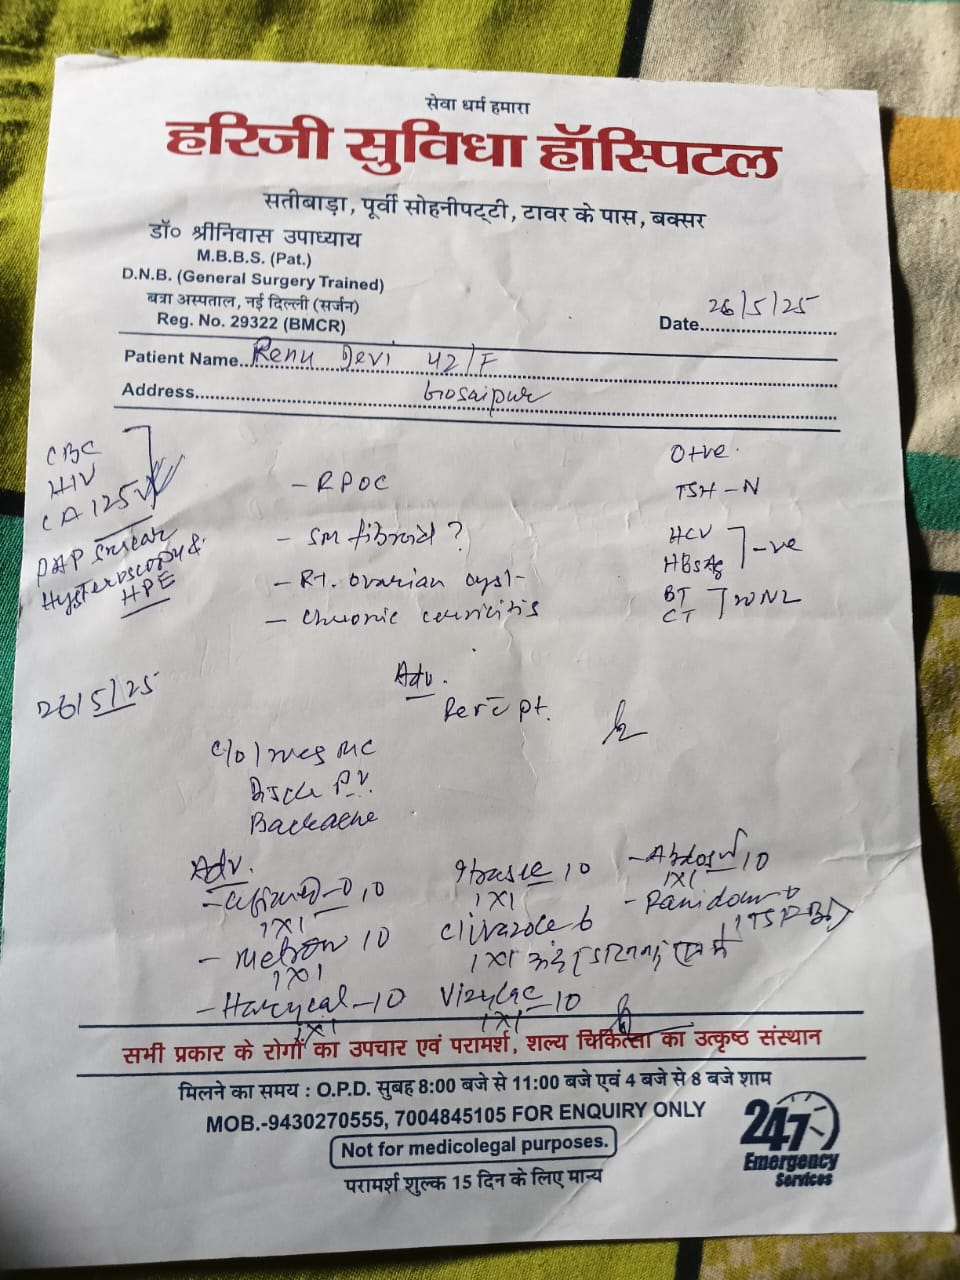 सेवा धर्म हमारा
हरिजी सुविधा हॉस्पिटल
सतीबाड़ा, पूर्वी सोहनीपट्टी, टावर के पास, बक्सर
डॉ० श्रीनिवास उपाध्याय
M.B.B.S. (Pat.)
D.N.B. (General Surgery Trained)
बत्रा अस्पताल, नई दिल्ली (सर्जन)
Reg. No. 29322 (BMCR)
Date 26/5/25
Patient Name Renu Devi 42/F
Address Gosaipur
CBC
HIV
CA 125
PAP smear
Hysteroscopy &
HPE
- RPOC
- SM fibroid ?
- Rt. ovarian cyst
- Chronic cervicitis
O+ve
TSH - N
HCV
HBsAg -ve
BT
CT WNL
26/5/25
Adv.
Rev c pt.
c/o
MC
P.V.
Backache
Adv.
-0 10
1X1
- Metron 10
1X1
- 10
1X1
10
1X1
6
1X1
Vizylac - 10
1X1
10
1X1
सभी प्रकार के रोगों का उपचार एवं परामर्श, शल्य चिकित्सा का उत्कृष्ठ संस्थान
मिलने का समय : O.P.D. सुबह 8:00 बजे से 11:00 बजे एवं 4 बजे से 8 बजे शाम
MOB.-9430270555, 7004845105 FOR ENQUIRY ONLY
Not for medicolegal purposes.
परामर्श शुल्क 15 दिन के लिए मान्य
247
Emergency
Services